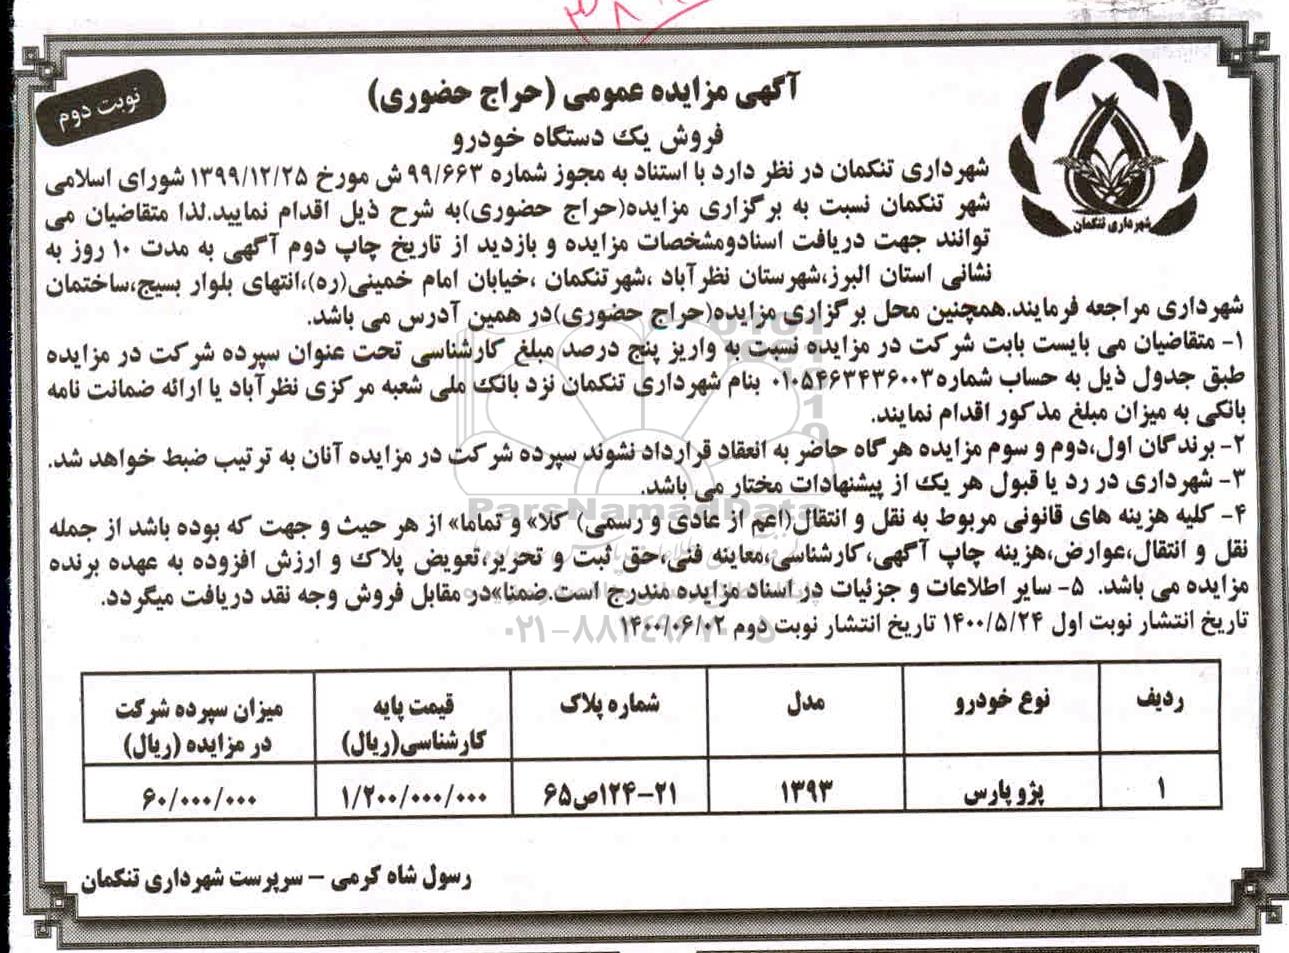 نوبت دوم
آگهی مزایده عمومی (حراج حضوری)
فروش یک دستگاه خودرو
شهرداری تنکمان
شهرداری تنکمان در نظر دارد با استناد به مجوز شماره ۹۹/۶۶۳ ش مورخ ۱۳۹۹/۱۲/۲۵ شورای اسلامی
شهر تنکمان نسبت به برگزاری مزایده(حراج حضوری)به شرح ذیل اقدام نمایید.لذا متقاضیان می
توانند جهت دریافت اسنادومشخصات مزایده و بازدید از تاریخ چاپ دوم آگهی به مدت ۱۰ روز به
نشانی استان البرز،شهرستان نظرآباد ،شهرتنکمان ،خیابان امام خمینی(ره)،انتهای بلوار بسیج،ساختمان
شهرداری مراجعه فرمایند.همچنین محل برگزاری مزایده(حراج حضوری)در همین آدرس می باشد.
۱- متقاضیان می بایست بابت شرکت در مزایده نسبت به واریز پنج درصد مبلغ کارشناسی تحت عنوان سپرده شرکت در مزایده
طبق جدول ذیل به حساب شماره۰۱۰۵۴۶۳۴۳۶۰۰۳ بنام شهرداری تنکمان نزد بانک ملی شعبه مرکزی نظرآباد یا ارائه ضمانت نامه
بانکی به میزان مبلغ مذکور اقدام نمایند.
۲- برندگان اول،دوم و سوم مزایده هرگاه حاضر به انعقاد قرارداد نشوند سپرده شرکت در مزایده آنان به ترتیب ضبط خواهد شد.
۳- شهرداری در رد یا قبول هر یک از پیشنهادات مختار می باشد.
۴- کلیه هزینه های قانونی مربوط به نقل و انتقال(اعم از عادی و رسمی) کلا» و تماما» از هر حیث و جهت که بوده باشد از جمله
نقل و انتقال،عوارض،هزینه چاپ آگهی،کارشناسی،معاینه فنی،حق ثبت و تحریر،تعویض پلاک و ارزش افزوده به عهده برنده
مزایده می باشد. ۵- سایر اطلاعات و جزئیات در اسناد مزایده مندرج است.ضمنا»در مقابل فروش وجه نقد دریافت میگردد.
تاریخ انتشار نوبت اول ۱۴۰۰/۵/۲۴ تاریخ انتشار نوبت دوم ۱۴۰۰/۰۶/۰۲
ParsNamadData
ردیف نوع خودرو مدل شماره پلاک قیمت پایه کارشناسی(ریال) میزان سپرده شرکت در مزایده (ریال)
۱ پژو پارس ۱۳۹۳ ۲۱-۱۲۴ص۶۵ ۱/۲۰۰/۰۰۰/۰۰۰ ۶۰/۰۰۰/۰۰۰
رسول شاه کرمی – سرپرست شهرداری تنکمان